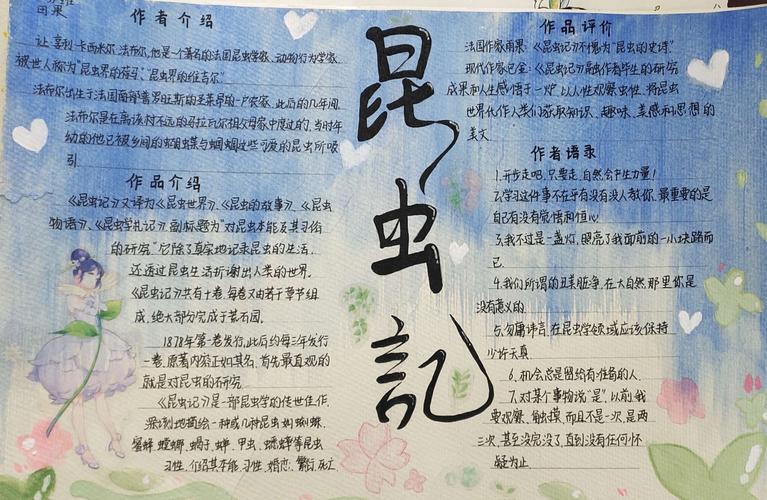 田果
作者介绍
让·亨利·卡西米尔·法布尔,他是个著名的法国昆虫学家、动物行为学家,
被世人称为“昆虫界的荷马”“昆虫界的维吉尔”
法布尔出生于法国南部普罗旺斯的圣莱昂的一户农家,此后的几年间,
法布尔是在离该村不远的马拉瓦尔祖父母家中度过的,当时年
幼的他已被乡间的蝴蝶与蝈蝈这些可爱的昆虫所吸
引.
作品介绍
《昆虫记》又译为《昆虫世界》、《昆虫的故事》、《昆虫
物语》、《昆虫学札记》,副标题为“对昆虫本能及其习俗
的研究”.它除了真实地记录昆虫的生活,
还透过昆虫生活折谢出人类的世界。
《昆虫记》共有十卷,每卷又由若干章节组
成,绝大部分完成于荒石园。
1878年第一卷发行,此后约每三年发行
一卷.原著内容正如其名,首先最直观的
就是对昆虫的研究.
《昆虫记》是一部昆虫学的传世佳作,
深刻地描绘一种或几种昆虫如蜘蛛、
蜜蜂、螳螂、蝎子、蝉、甲虫、蟋蟀等昆虫
习性,介绍其本能、习性、婚恋、繁衍、死亡
昆虫記
作品评价
法国作家雨果:《昆虫记》不愧为“昆虫的史诗”
现代作家巴金:《昆虫记》融虫作者毕生的研究
成果和人生感悟于一炉,以人性观察虫性,将昆虫
世界化作人类们获取知识、趣味、美感和思想的
美文.
作者语录
1.开步走吧,只要走,自然会产生力量!
2.学习这件事不在乎有没有没人教你,最重要的是
自己有没有觉悟和恒心.
3.我不过是一盏灯,照亮了我面前的一小块路而
已.
4.我们所谓的丑美脏净,在大自然那里你是
没有意义的.
5.勿庸讳言,在昆虫学领域应该保持
少许天真.
6.机会总是留给有准备的人.
7.对某个事物说“是”,以前我
要观察、触摸,而且不是一次,是两
三次,甚至没完没了,直到没有任何怀
疑为止.